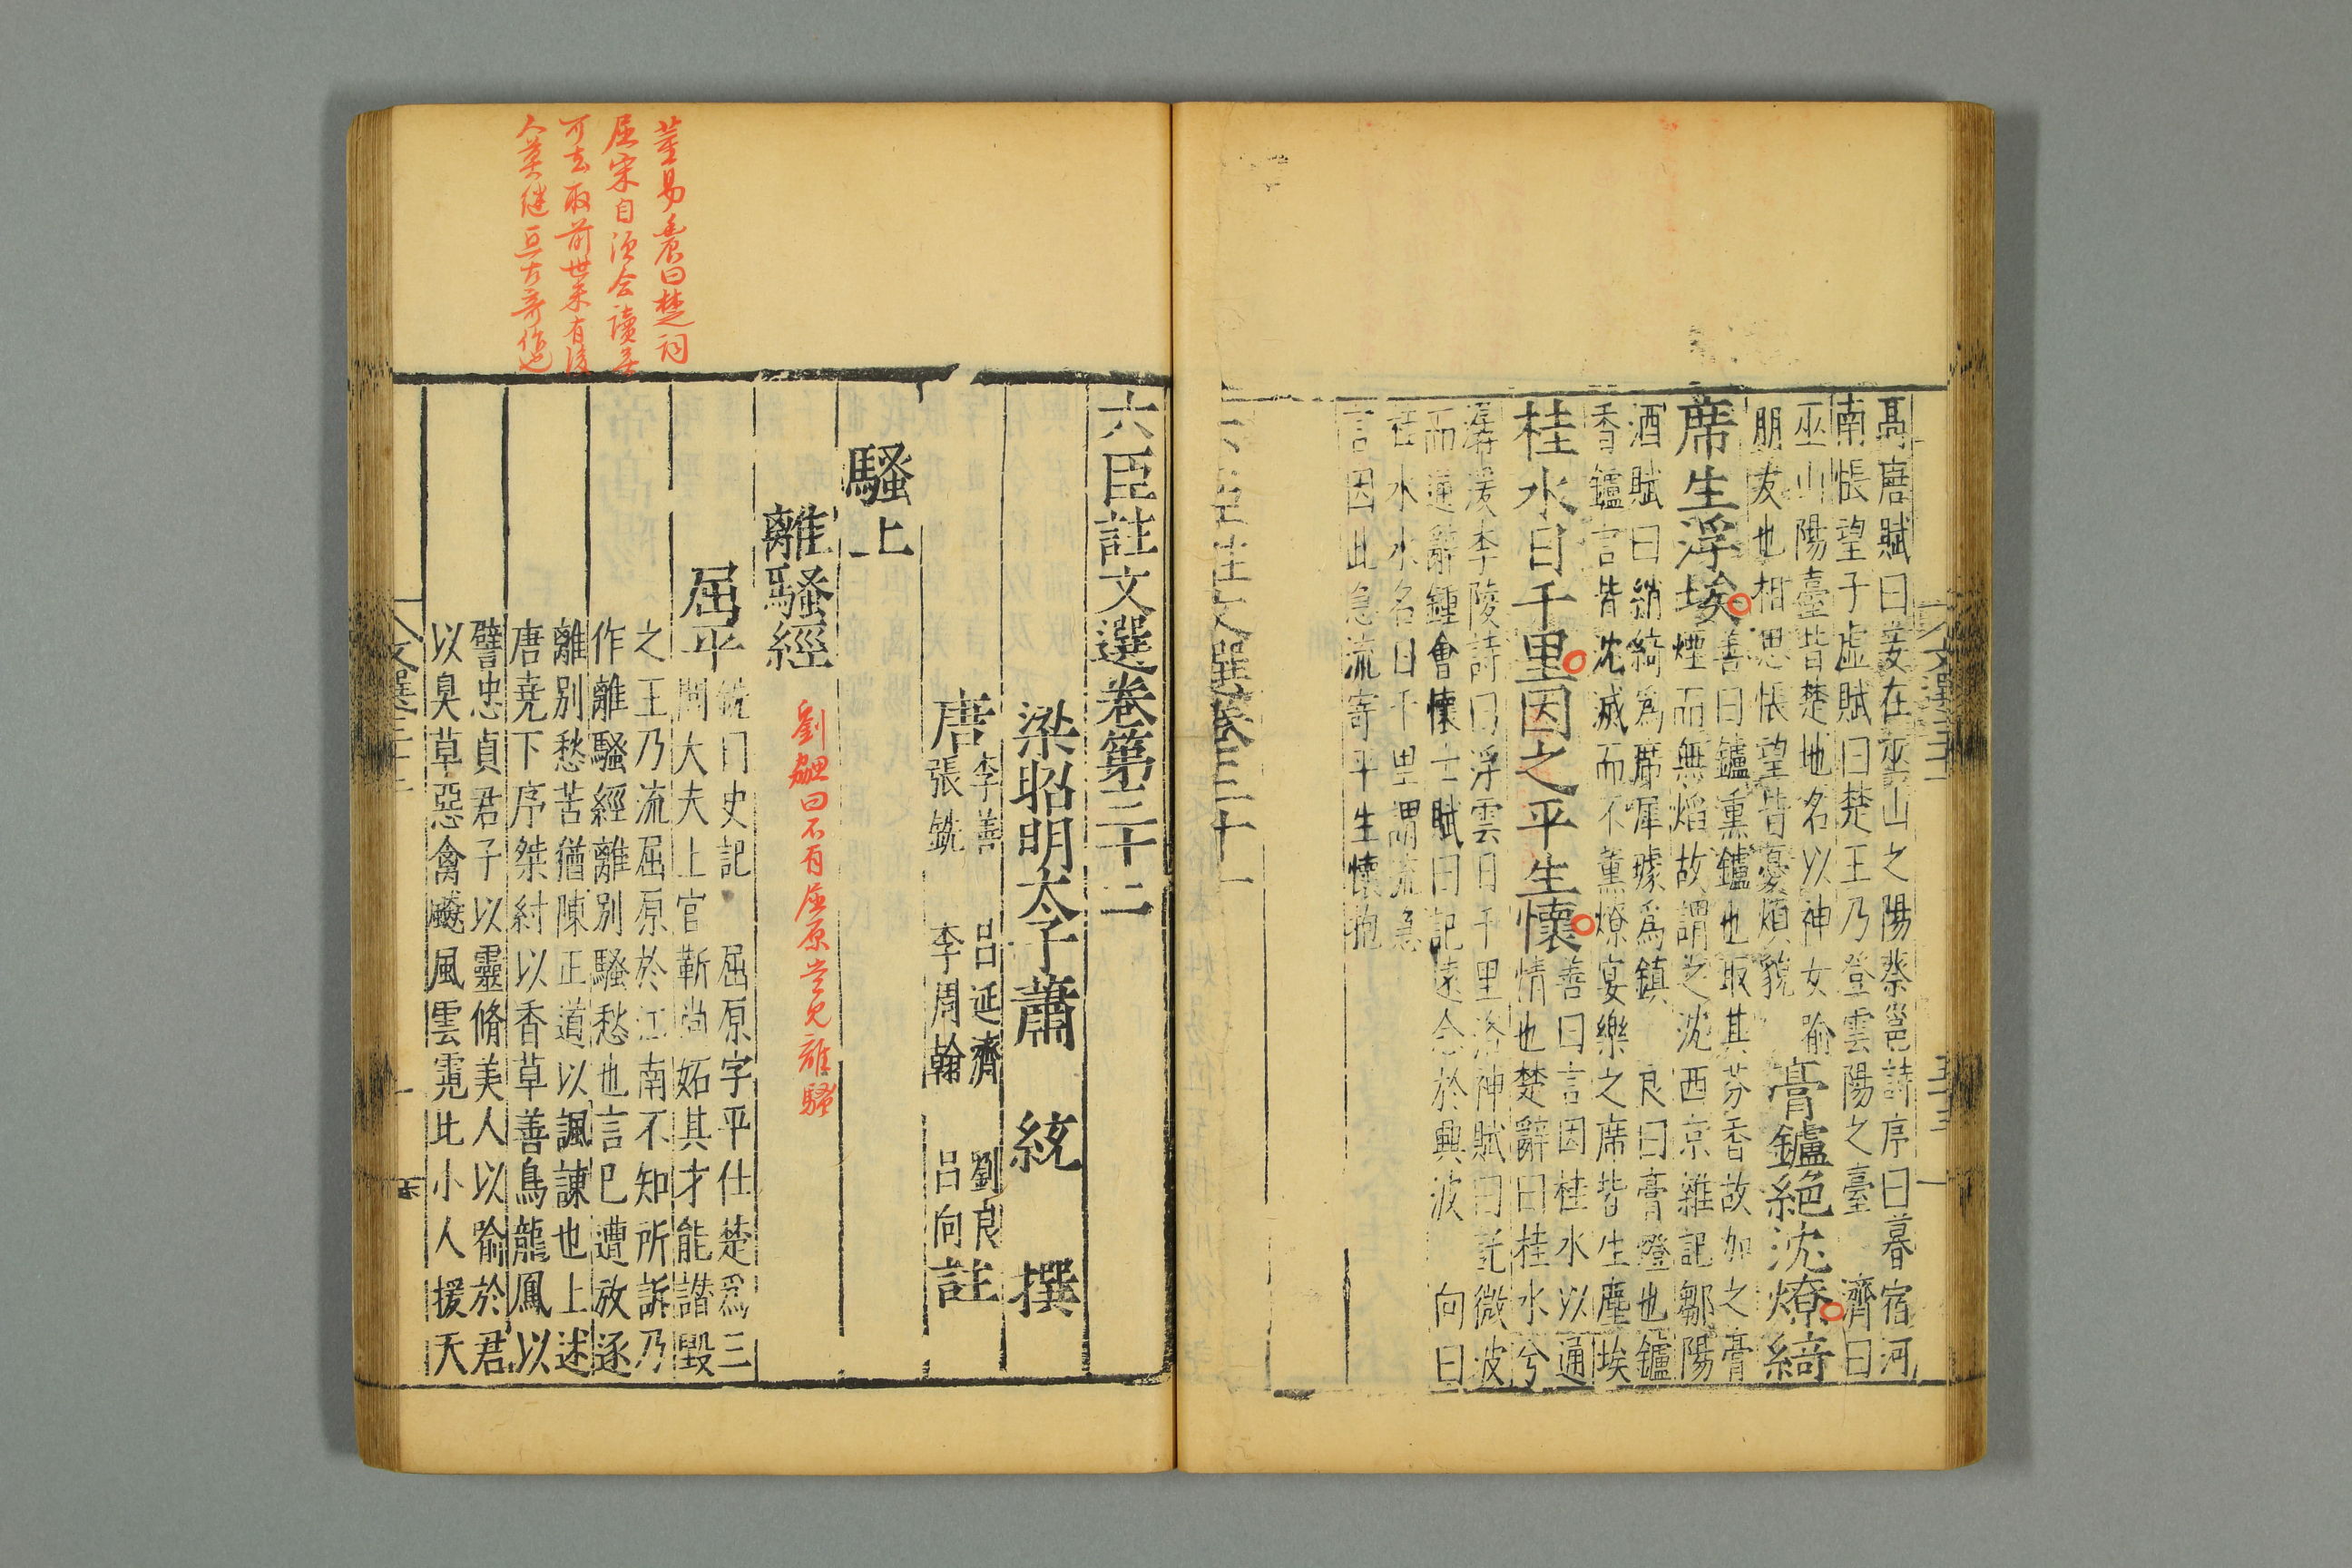 高唐賦曰妾在巫山之陽蔡邕詩序曰暮宿河
南悵望子虛賦曰楚王乃登雲陽之臺　濟曰
巫山陽臺皆楚地名以神女喻
朋友也相思悵望皆憂煩貌
膏鑪絕沈燎綺
席生浮埃
善曰鑪熏鑪也取其芬香故加之膏
煙而無焰故謂之沈西京雜記鄒陽
酒賦曰綃綺為席犀璩為鎮　良曰膏燈也鑪
香鑪言皆沈滅而不薰燎宴樂之席皆生塵埃
桂水日千里因之平生懷
善曰言因桂水以通
情也楚辭曰桂水兮
潺湲李陵詩曰浮雲日千里洛神賦曰託微波
而通辭鍾會懷士賦曰記遠念於興波　向曰
桂水水名日千里謂流急
言因此急流寄平生懷抱
六臣註文選卷三十一
文選三十一
五十三
六臣註文選卷第三十二
梁昭明太子蕭　統　撰
唐
李善　呂延濟　劉良
張銑　李周翰　呂向
註
騷上
離騷經
劉勰曰不有屈原豈見離騷
屈平
銑曰史記　屈原字平仕楚爲三
閭大夫上官靳尚妬其才能譖毀
之王乃流屈原於江南不知所訴乃
作離騷經離別騷愁也言已遭放逐
離別愁苦猶陳正道以諷諫也上述
唐堯下序桀紂以香草善鳥龍鳳以
譬忠貞君子以靈脩美人以喻於君
以臭草惡禽飚風雲霓此小人援天
文選三十二
一
曰楚詞
屈宋自須合讀
可去取前世未有後
人莫繼亘古奇作也